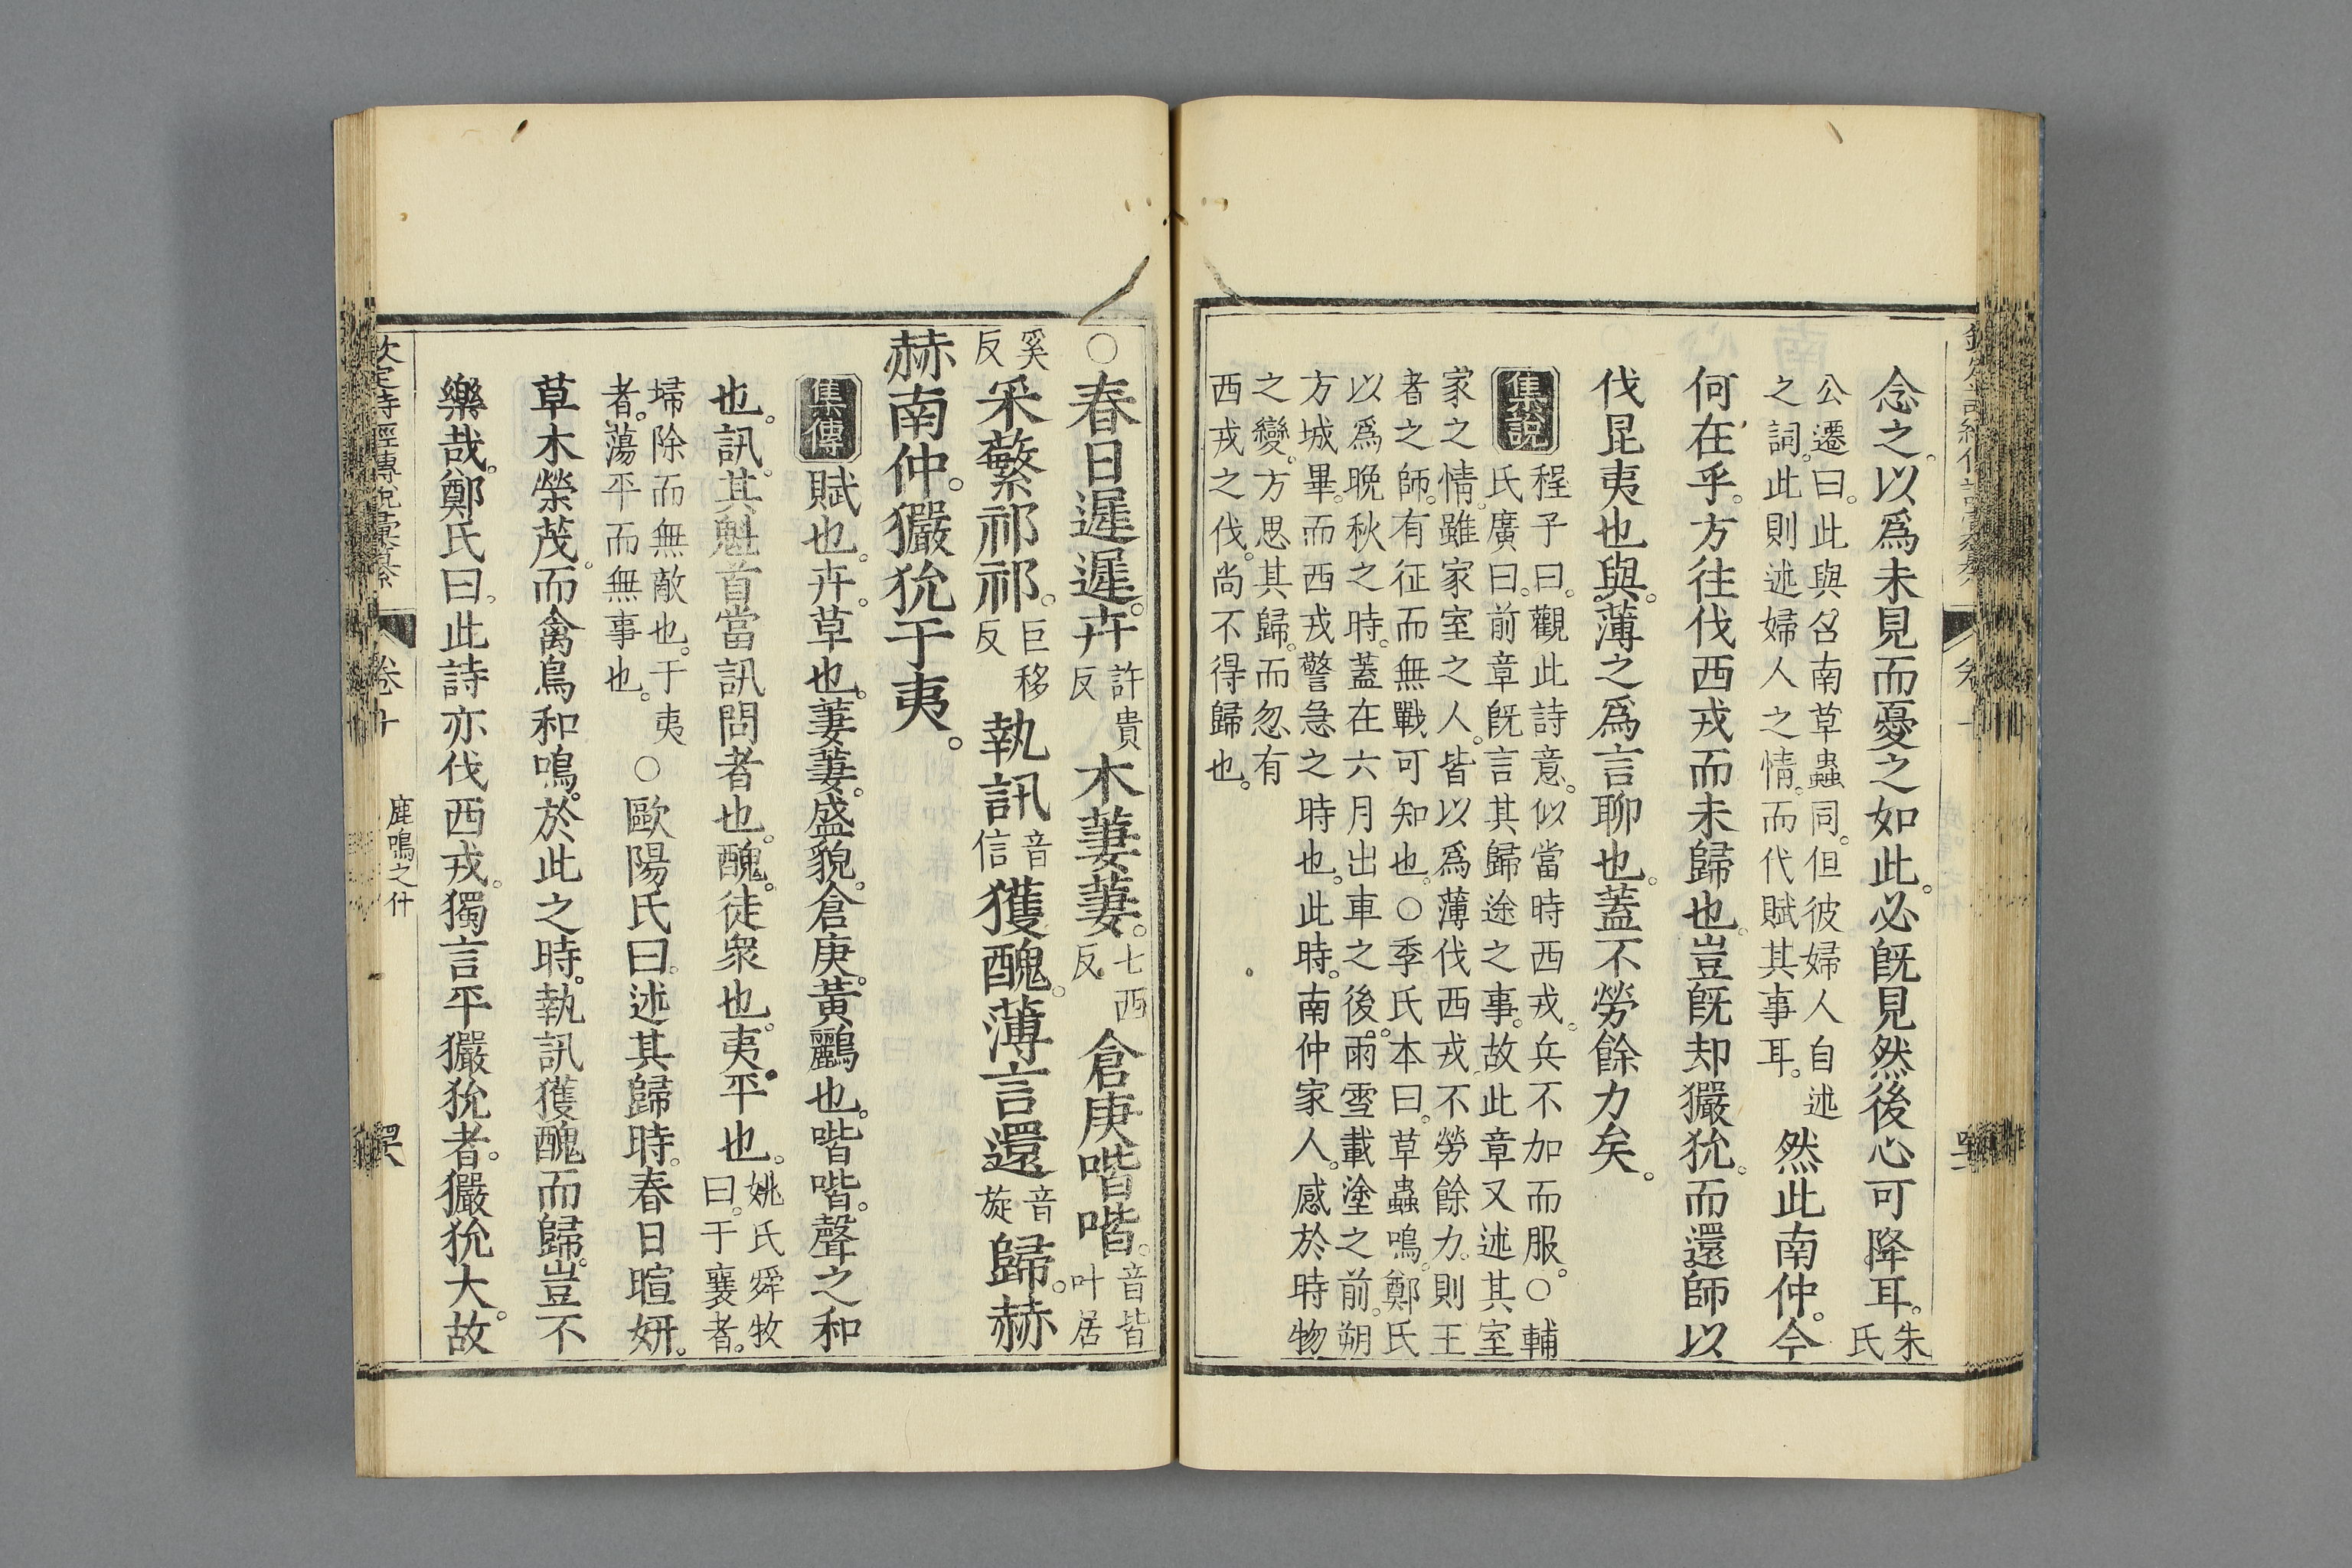 念之。以爲未見而憂之如此。必旣見然後心可降耳。朱氏
公遷曰。此與召南草蟲同。但彼婦人自述
之詞。此則述婦人之情。而代賦其事耳。然此南仲。今
何在乎。方往伐西戎而未歸也。豈旣却玁狁。而還師以
伐昆夷也與。薄之爲言聊也。蓋不勞餘力矣。
集說
程子曰。觀此詩意。似當時西戎。兵不加而服。○輔
氏廣曰。前章旣言其歸途之事。故此章又述其室
家之情。雖家室之人。皆以爲薄伐西戎。不勞餘力。則王
者之師。有征而無戰可知也。○季氏本曰。草蟲鳴。鄭氏
以爲晩秋之時。蓋在六月出車之後。雨雪載塗之前。朔
方城畢。而西戎警急之時也。此時。南仲家人。感於時物
之變。方思其歸。而忽有
西戎之伐。尚不得歸也。
○春日遲遲。卉許貴反木萋萋。七西反倉庚喈喈。音皆叶居
奚反采蘩祁祁。巨移反執訊音信獲醜。薄言還音旋歸。赫
赫南仲。玁狁于夷。
集傳
賦也。卉。草也。萋萋。盛貌。倉庚。黃鸝也。喈喈。聲之和
也。訊。其魁首當訊問者也。醜。徒衆也。夷。平也。姚氏舜牧曰。于襄者。
埽除而無敵也。于夷
者。蕩平而無事也。○歐陽氏曰。述其歸時。春日暄妍。
草木榮茂。而禽鳥和鳴。於此之時。執訊獲醜而歸。豈不
樂哉。鄭氏曰。此詩亦伐西戎。獨言平玁狁者。玁狁大。故
欽定詩經傳說彙纂
卷十
鹿鳴之什